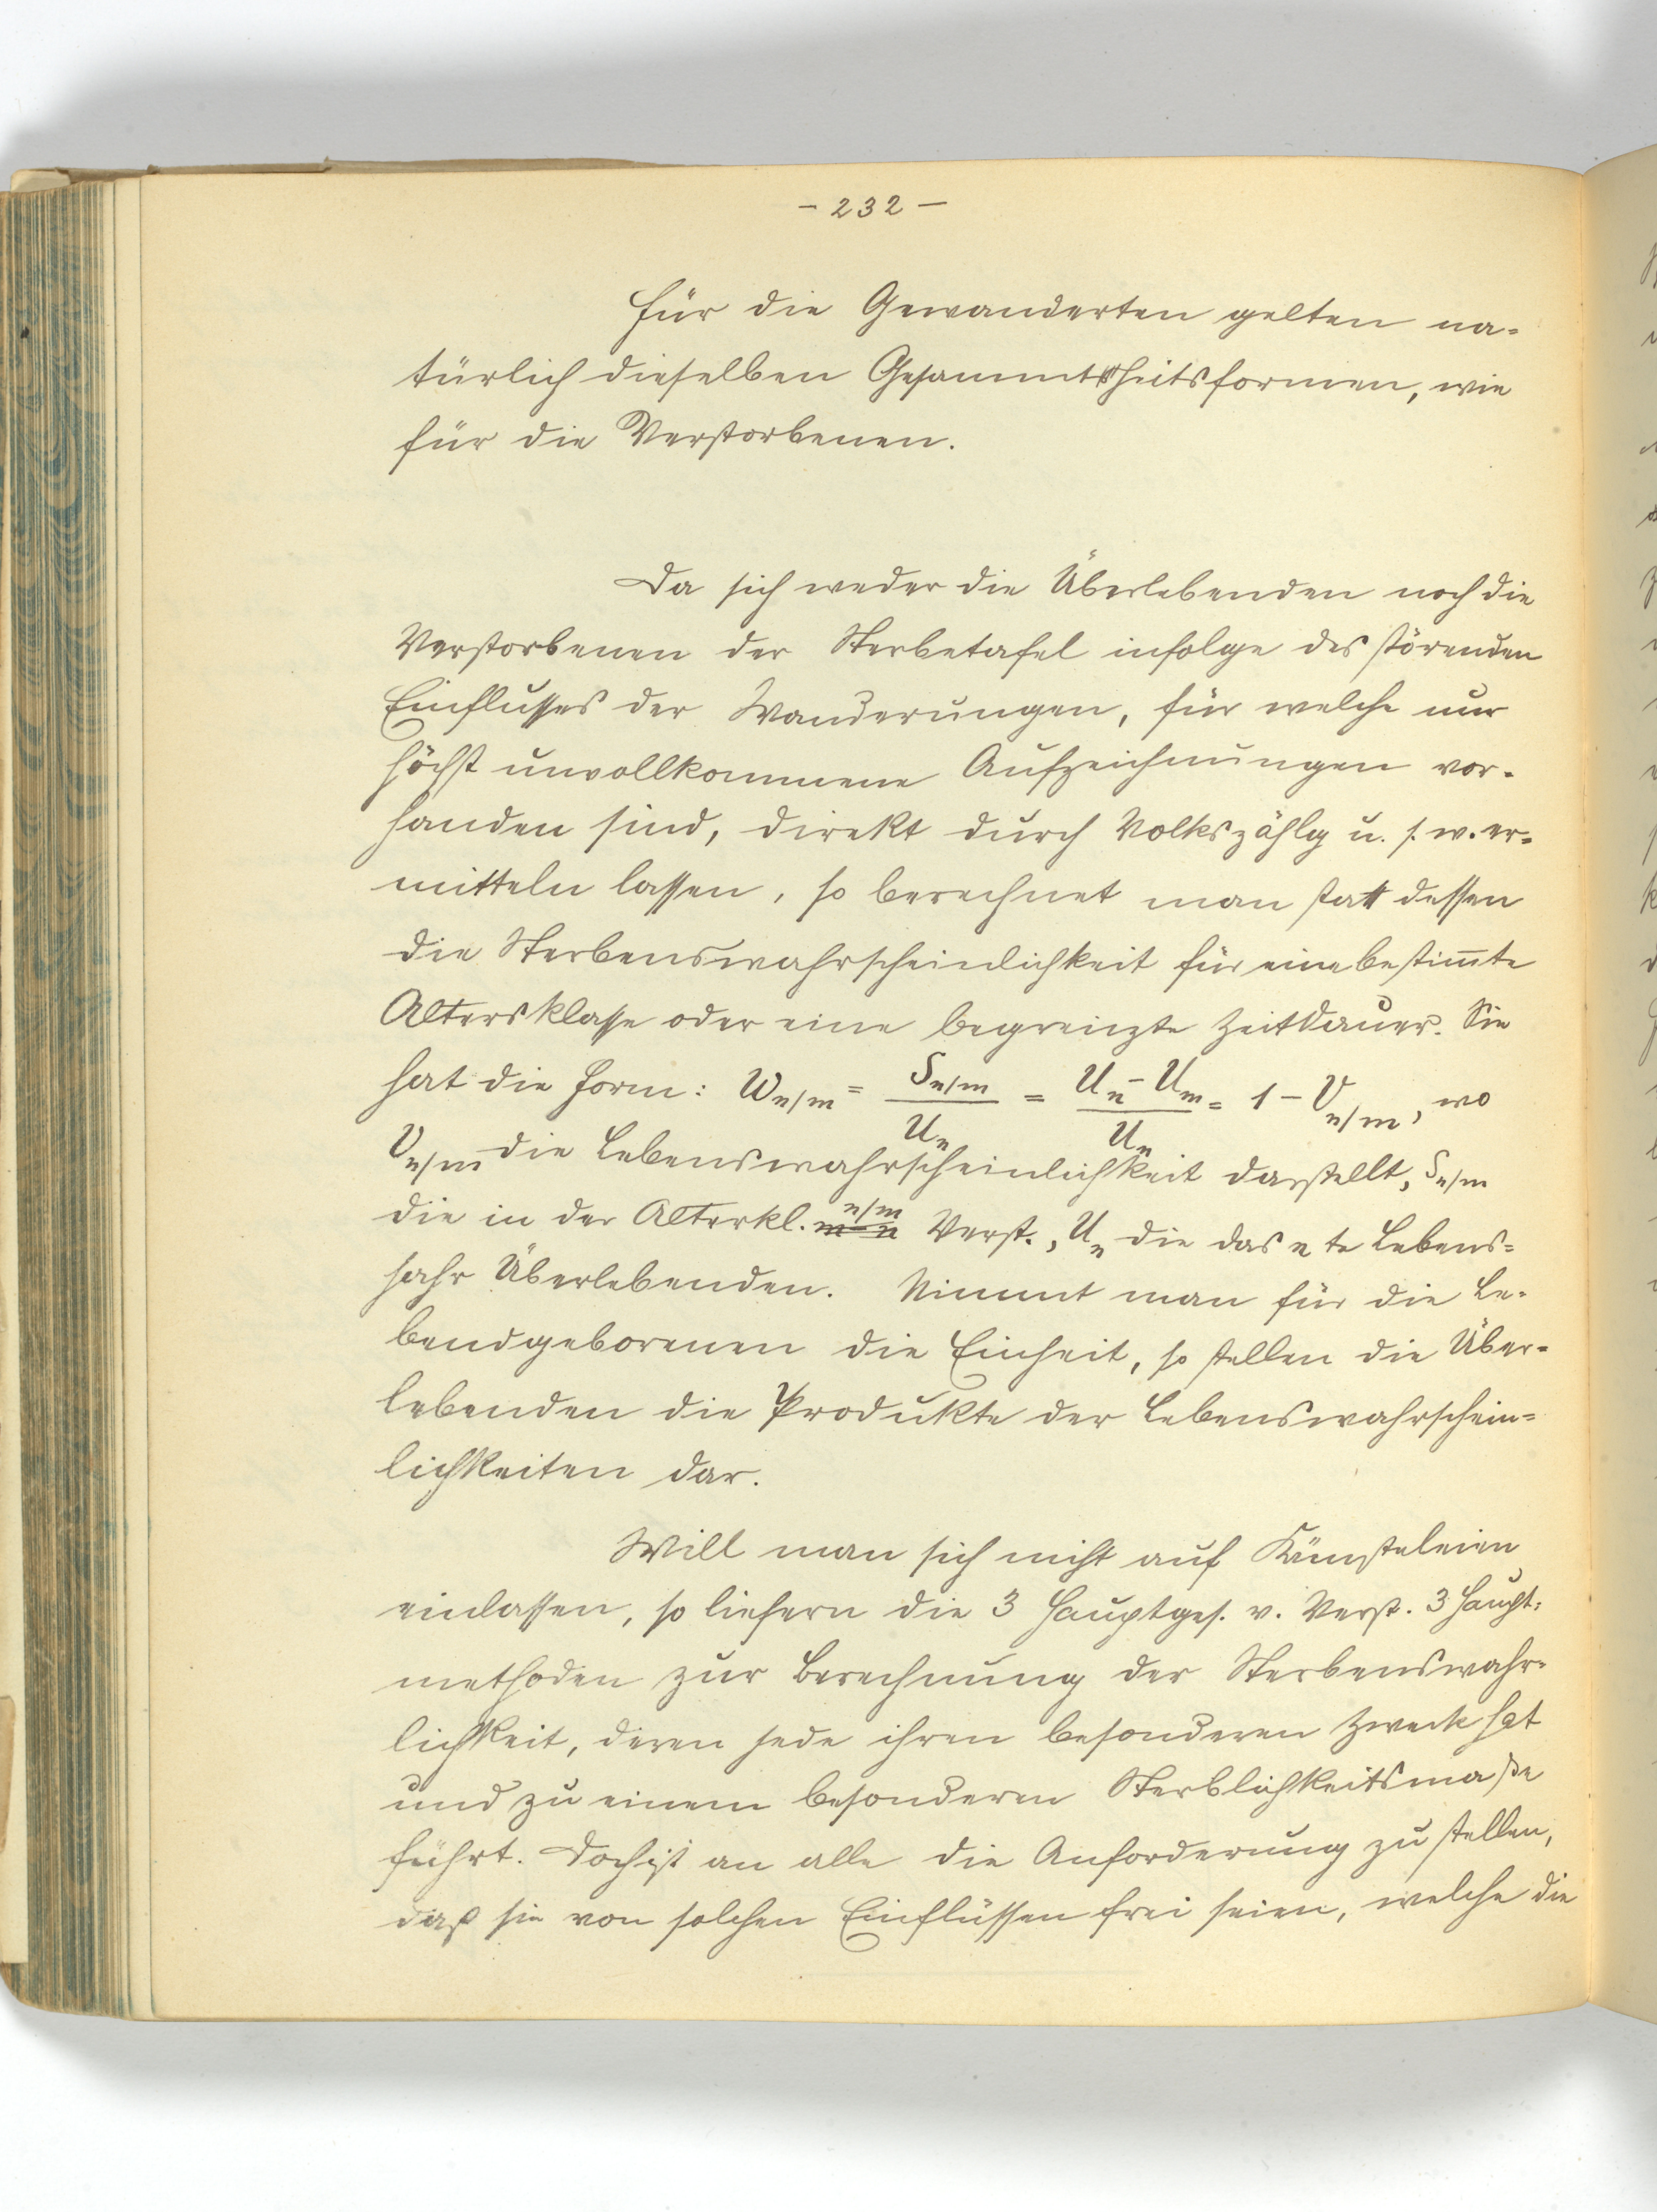 - 232 -
Für die Gewanderten gelten na-
türlich dieselben Gesammtheitsformen, wie
für die Verstorbenen.
Da sich weder die Überlebenden noch die
Verstorbenen der Sterbetafel infolge des störenden
Einflusses der Wanderungen, für welche nur
höchst unvollkommene Aufzeichnungen vor-
handen sind, direkt durch Volkszählg u. s. w. er-
mitteln lassen, so berechnet man statt dessen
die Sterbenswahrscheinlichkeit für eine bestim̄te
Altersklasse oder eine begrenzte Zeitdauer. Sie
hat die Form: W_{n/m} = S_{n/m} / U_n = (U_n - U_m) / U_n = 1 - V_{n/m}, wo
V_{n/m} die Lebenswahrscheinlichkeit darstellt, S_{n/m}
die in der Alterkl. n/m Verst., U_n die das n te Lebens-
jahr Überlebenden. Nimmt man für die Le-
bendgeborenen die Einheit, so stellen die Über-
lebenden die Produkte der Lebenswahrschein-
lichkeiten dar.
Will man sich nicht auf Künsteleien
einlassen, so liefern die 3 Hauptges. v. Verst. 3 Haupt-
methoden zur Berechnung der Sterbenswahr-
lichkeit, deren jede ihren besonderen Zweck hat
und zu einem besonderen Sterblichkeitsmaße
führt. Doch ist an alle die Anforderung zu stellen,
daß sie von solchen Einflüssen frei seien, welche die